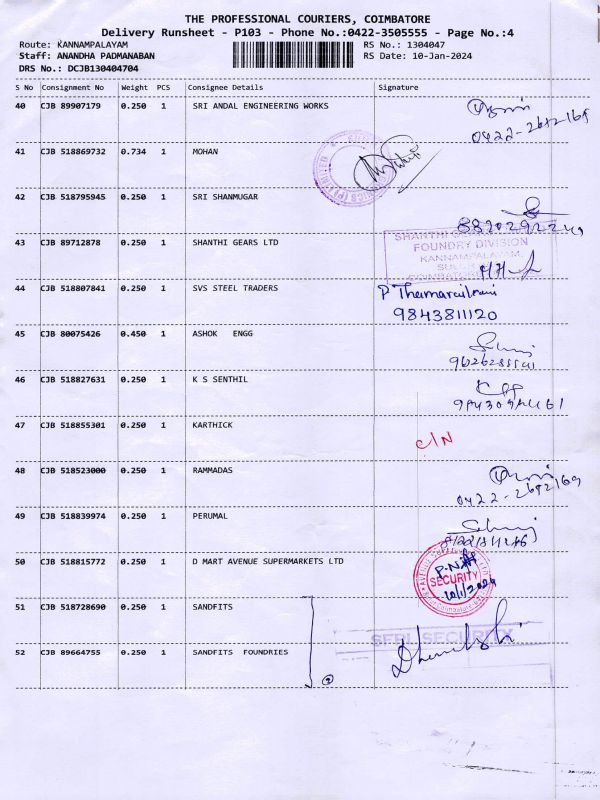 THE PROFESSIONAL COURIERS, COIMBATORE
Delivery Runsheet - P103 - Phone No.:0422-3505555 - Page No.:4
Route: KANNAMPALAYAM RS No.: 1304047
Staff: ANANDHA PADMANABAN RS Date: 10-Jan-2024
DRS No.: DCJB130404704
S No Consignment No Weight PCS Consignee Details Signature
40 CJB 89907179 0.250 1 SRI ANDAL ENGINEERING WORKS
0422-2682169
41 CJB 518869732 0.734 1 MOHAN
42 CJB 518795945 0.250 1 SRI SHANMUGAR
43 CJB 89712878 0.250 1 SHANTHI GEARS LTD
SHANTHI
FOUNDRY DIVISION
KANNAMPALAYAM,
44 CJB 518807841 0.250 1 SVS STEEL TRADERS
9843811120
45 CJB 80075426 0.450 1 ASHOK ENGG
46 CJB 518827631 0.250 1 K S SENTHIL
47 CJB 518855301 0.250 1 KARTHICK
C/N
48 CJB 518523000 0.250 1 RAMMADAS
49 CJB 518839974 0.250 1 PERUMAL
50 CJB 518815772 0.250 1 D MART AVENUE SUPERMARKETS LTD
SECURITY
10/1/2024
51 CJB 518728690 0.250 1 SANDFITS
SFPL SECURITY
52 CJB 89664755 0.250 1 SANDFITS FOUNDRIES
2